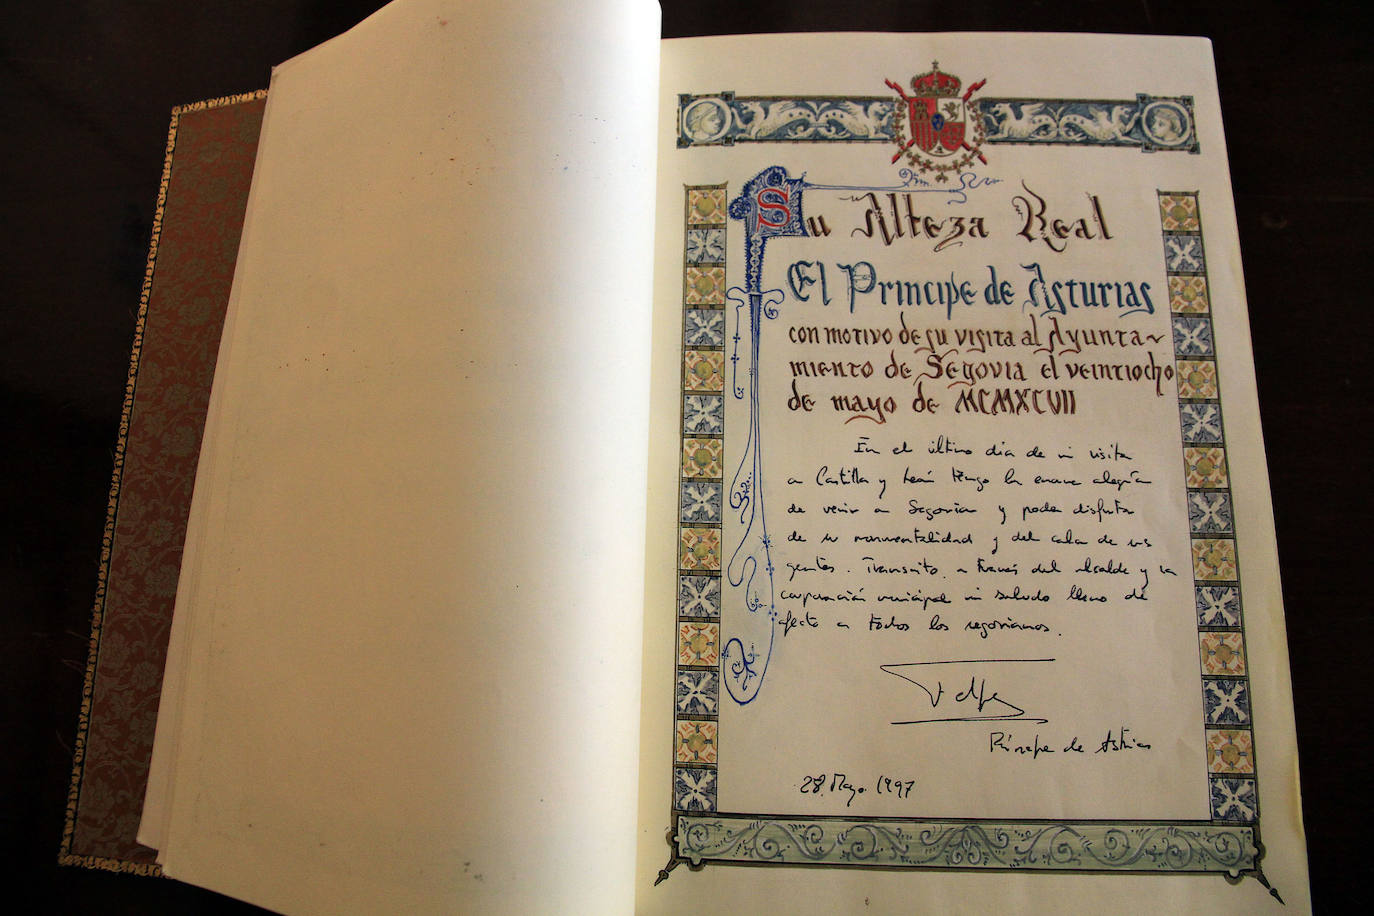 Su Alteza Real
El Príncipe de Asturias
con motivo de su visita al Ayunta-
miento de Segovia el veintiocho
de mayo de MCMXCVII
En el último día de mi visita
a Castilla y León tengo la enorme alegría
de venir a Segovia y poder disfrutar
de su monumentalidad y del calor de sus
gentes. Transmito, a través del alcalde y la
corporación municipal mi saludo lleno de
afecto a todos los segovianos.
Felipe
Príncipe de Asturias
28. Mayo. 1997